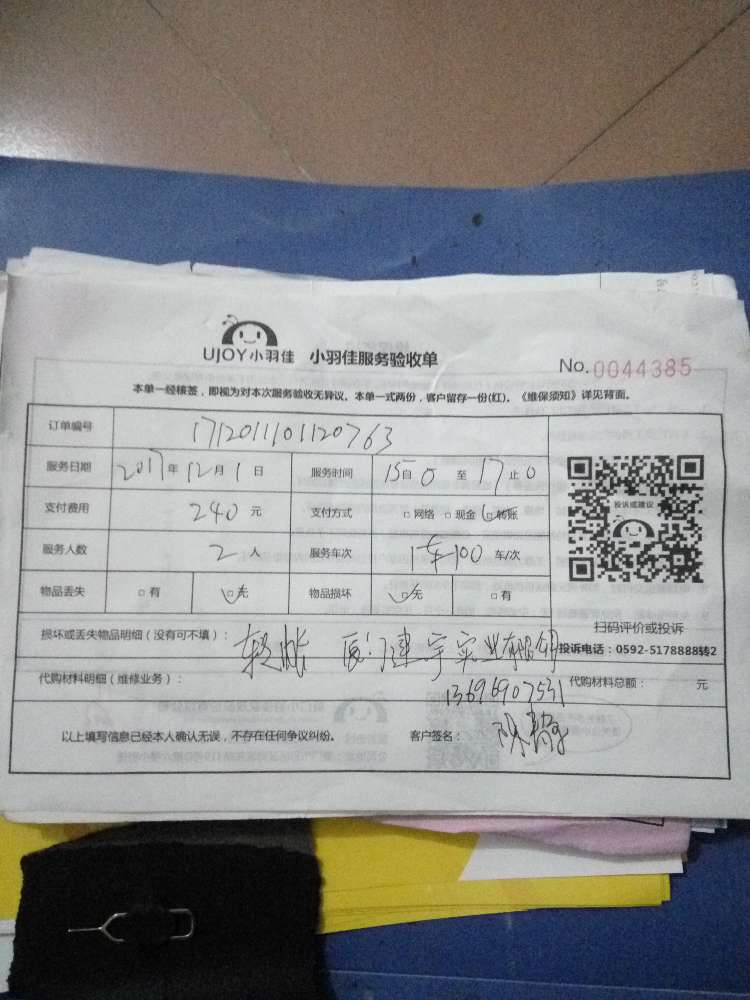 UJOY小羽佳 小羽佳服务验收单 No.0044385
本单一经核签，即视为对本次服务验收无异议。本单一式两份，客户留存一份(红)。《维保须知》详见背面。
订单编号 1712011101120763
服务日期 2017年12月1日 服务时间 15自0至17止0
支付费用 240元 支付方式 □网络 □现金 □转账
投诉或建议
服务人数 2人 服务车次 1车100车/次
物品丢失 □有 □无 物品损坏 □无 □有
扫码评价或投诉
损坏或丢失物品明细（没有可不填）： 转账 厦门建宇实业有限公司
投诉电话：0592-5178888转2
代购材料明细（维修业务）： 13696907531 代购材料总额： 元
以上填写信息已经本人确认无误，不存在任何争议纠纷。 客户签名：